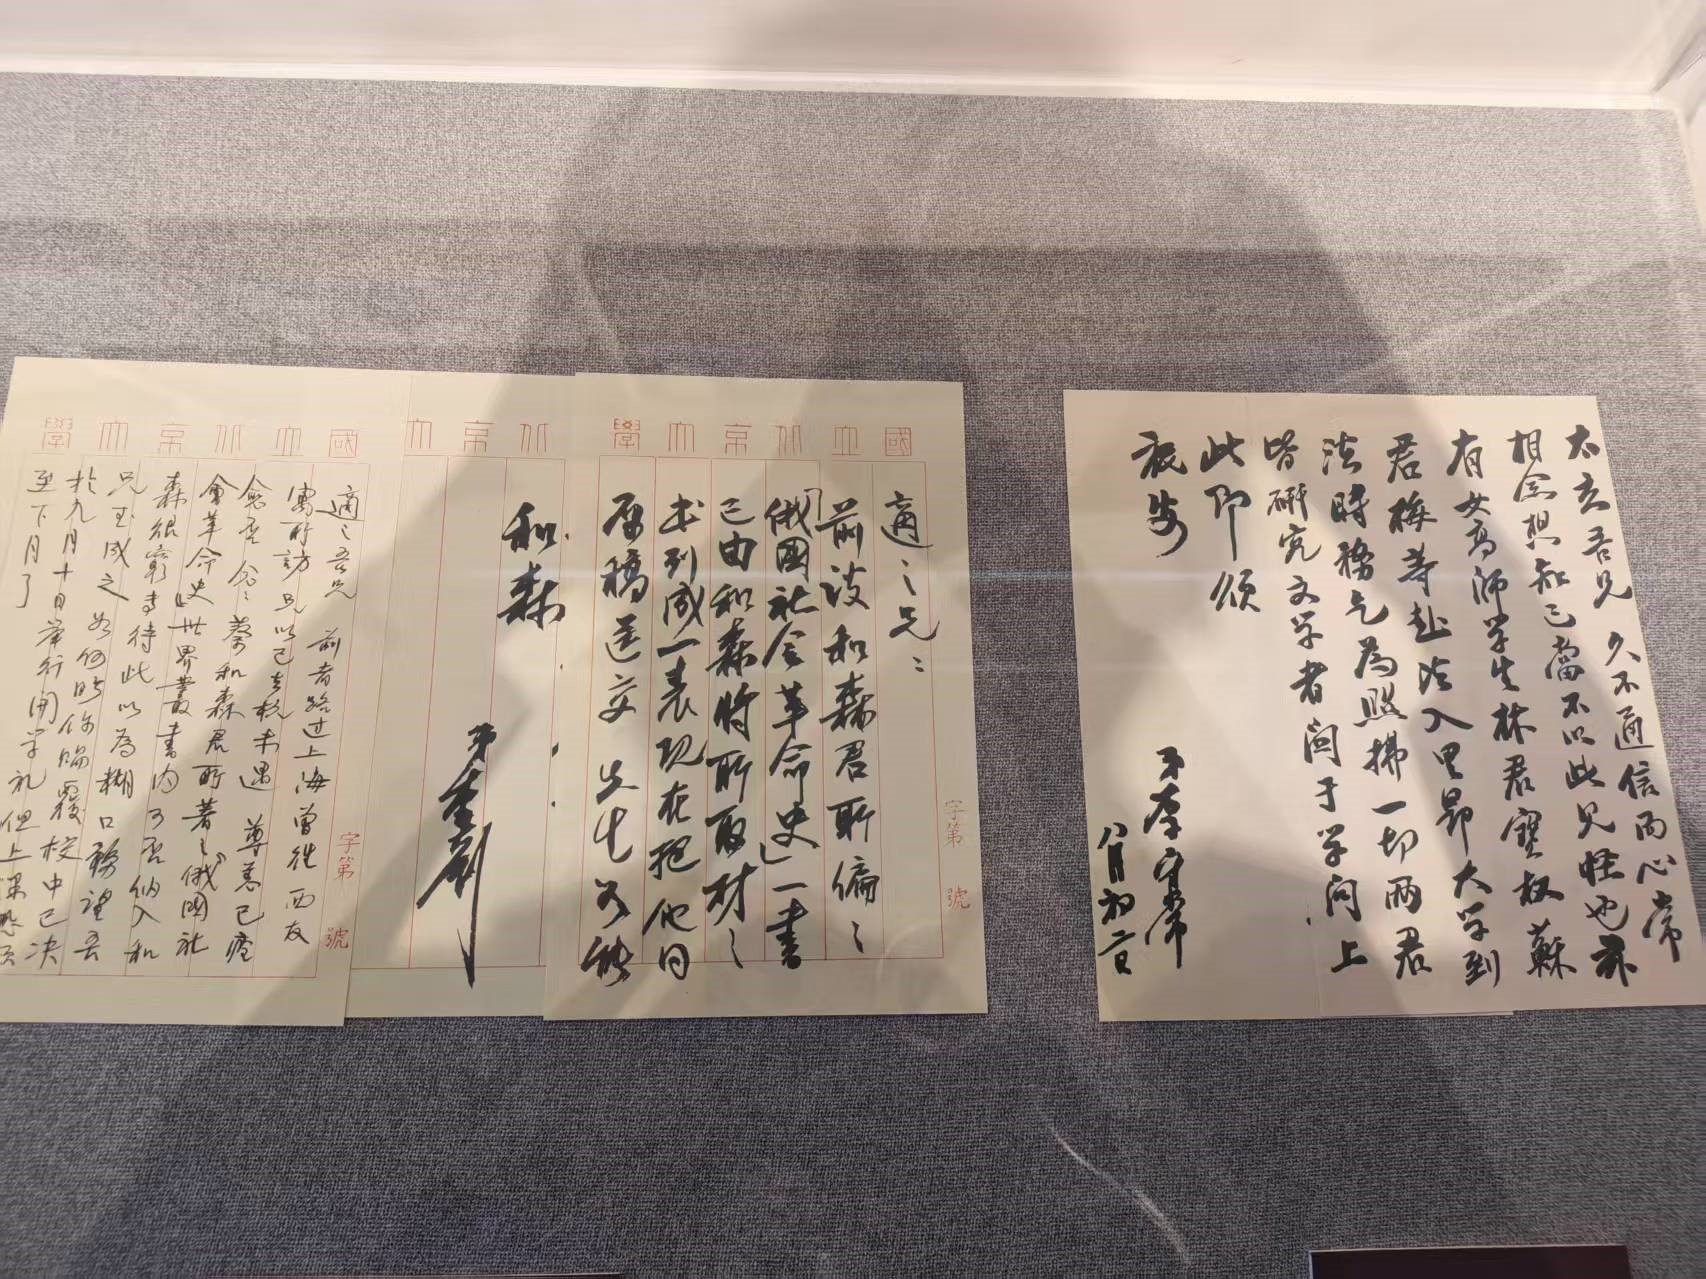 太玄吾兄 久不通信而心常
相念想知己當不以此見怪也 茲
有女高师学生林君寶权蘇
君梅等赴法入里昂大学到
法時務乞為照拂一切两君
皆研究文学者関于学问上
此即頌
旅安
弟李守常
八月初二日
國立北京大學
字第 號
適之兄：
前谈和森君所编之
「俄國社会革命史」一書
已由和森将所取材之
书列成一表现在把他同
原稿送交 先生 如能
北京大
和森
弟 李
國立北京大學
字第 號
適之吾兄 前者路过上海曾往西友
寓所訪兄以已去杭未遇 尊恙已痊
愈否 念念 蔡和森君所著之「俄國社
會革命史」世界叢書内可否納入和
森很窮專待此以為糊口務望吾
兄玉成之 如何盼你賜覆校中已决
於九月十日举行開学礼但上课恐须
至下月了